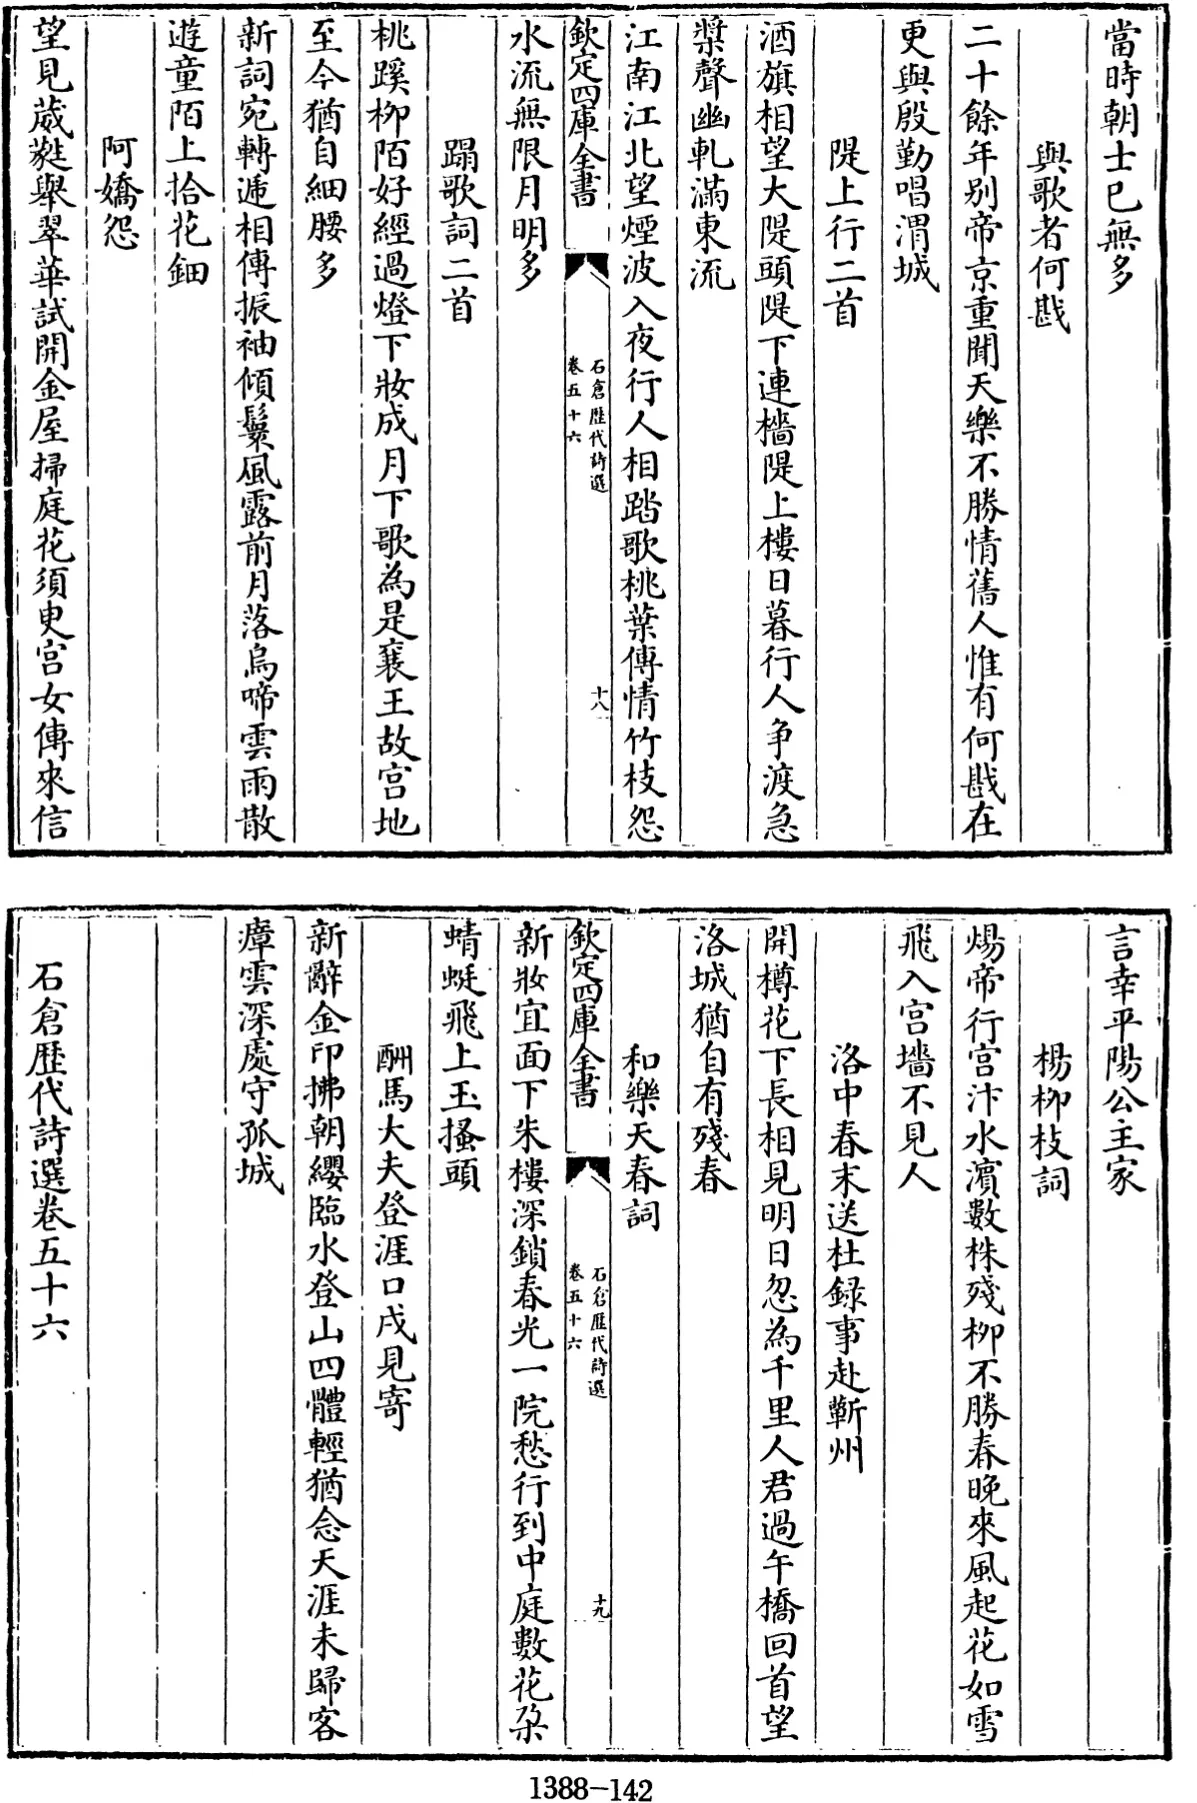 當時朝士已無多
與歌者何戡
二十餘年别帝京重聞天樂不勝情舊人惟有何戡在
更與殷勤唱渭城
隄上行二首
酒旗相望大隄頭隄下連檣隄上樓日暮行人争渡急
槳聲幽軋滿東流
江南江北望煙波入夜行人相踏歌桃葉傳情竹枝怨
欽定四庫全書
石倉歴代詩選
卷五十六
十八
水流無限月明多
蹋歌詞二首
桃蹊柳陌好經過燈下妝成月下歌為是襄王故宮地
至今猶自細腰多
新詞宛轉遞相傳振袖傾鬟風露前月落烏啼雲雨散
遊童陌上拾花鈿
阿嬌怨
望見葳蕤舉翠華試開金屋掃庭花須臾宮女傳來信
言幸平陽公主家
楊柳枝詞
煬帝行宮汴水濱數株殘柳不勝春晚來風起花如雪
飛入宮墻不見人
洛中春末送杜録事赴蘄州
開樽花下長相見明日忽為千里人君過午橋回首望
洛城猶自有殘春
和樂天春詞
欽定四庫全書
石倉歴代詩選
卷五十六
十九
新妝宜面下朱樓深鎖春光一院愁行到中庭數花朶
蜻蜓飛上玉搔頭
酬馬大夫登涯口戍見寄
新辭金印拂朝纓臨水登山四體輕猶念天涯未歸客
瘴雲深處守孤城
石倉歴代詩選卷五十六
1388-142